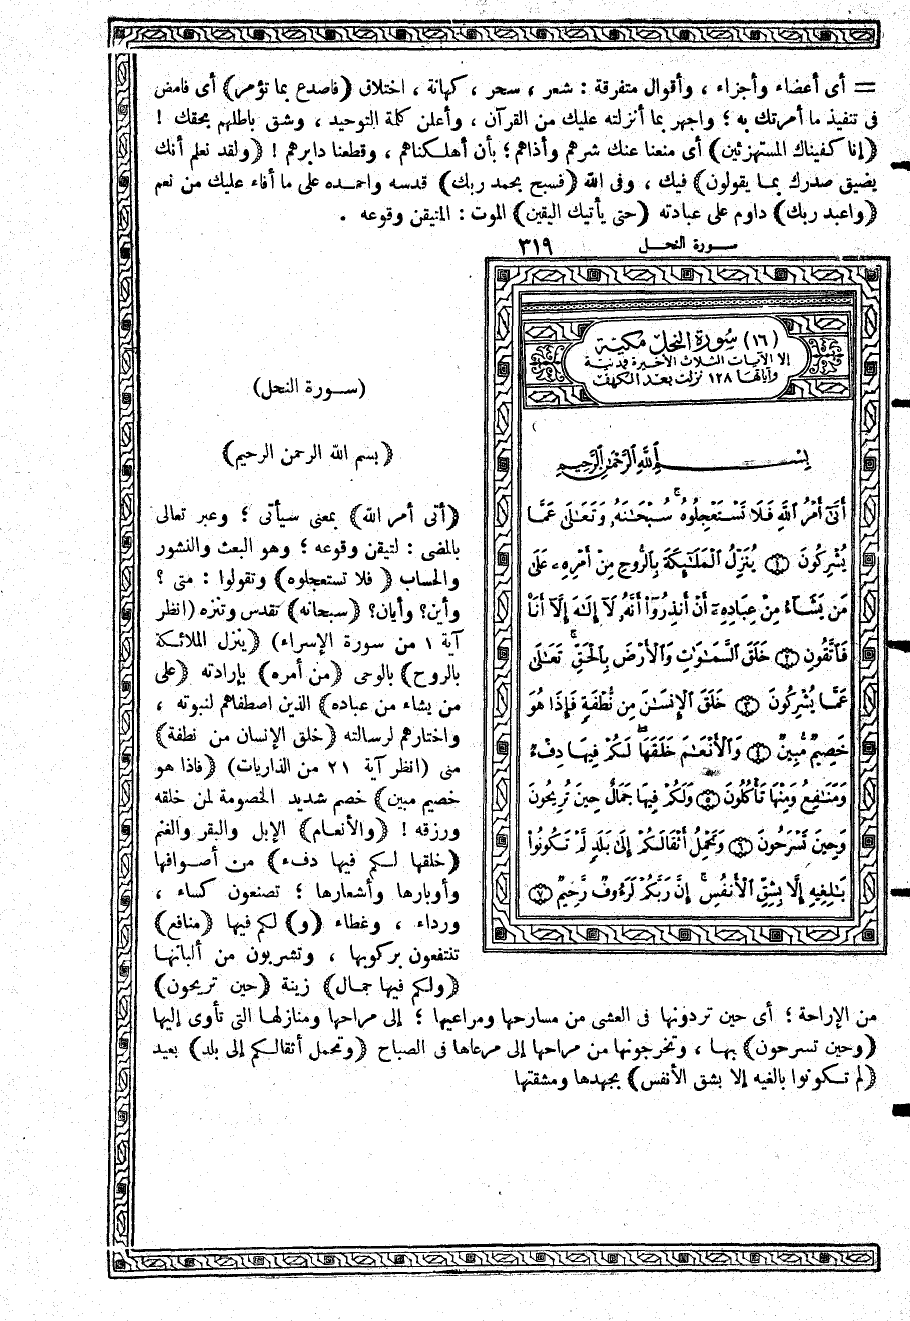 = أى أعضاء وأجزاء ، وأقوال متفرقة : شعر ، سحر ، كهانة ، اختلاق (فاصدع بما تؤمر) أى فامض
فى تنفيذ ما أمرتك به ؛ واجهر بما أنزلته عليك من القرآن ، وأعلن كلمة التوحيد ، وشق باطلهم بحقك !
(إنا كفيناك المستهزئين) أى منعنا عنك شرهم وأذاهم ؛ بأن أهلكناهم ، وقطعنا دابرهم ! (ولقد نعلم أنك
يضيق صدرك بما يقولون) فيك ، وفى الله (فسبح بحمد ربك) قدسه واحمده على ما أفاء عليك من نعم
(واعبد ربك) داوم على عبادته (حتى يأتيك اليقين) الموت : المتيقن وقوعه .
سورة النحل ٣١٩
(١٦) سُورَةُ النَّحْلِ مَكِّيَّة
إلا الآيات الثلاث الأخيرة فمدنية
وآياتها ١٢٨ نزلت بعد الكهف
بِسْمِ ٱللَّهِ ٱلرَّحْمَٰنِ ٱلرَّحِيمِ
أَتَىٰٓ أَمْرُ ٱللَّهِ فَلَا تَسْتَعْجِلُوهُ ۚ سُبْحَٰنَهُۥ وَتَعَٰلَىٰ عَمَّا
يُشْرِكُونَ ۝١ يُنَزِّلُ ٱلْمَلَٰٓئِكَةَ بِٱلرُّوحِ مِنْ أَمْرِهِۦ عَلَىٰ
مَن يَشَآءُ مِنْ عِبَادِهِۦٓ أَنْ أَنذِرُوٓا۟ أَنَّهُۥ لَآ إِلَٰهَ إِلَّآ أَنَا۠
فَٱتَّقُونِ ۝٢ خَلَقَ ٱلسَّمَٰوَٰتِ وَٱلْأَرْضَ بِٱلْحَقِّ ۚ تَعَٰلَىٰ
عَمَّا يُشْرِكُونَ ۝٣ خَلَقَ ٱلْإِنسَٰنَ مِن نُّطْفَةٍ فَإِذَا هُوَ
خَصِيمٌ مُّبِينٌ ۝٤ وَٱلْأَنْعَٰمَ خَلَقَهَا ۗ لَكُمْ فِيهَا دِفْءٌ
وَمَنَٰفِعُ وَمِنْهَا تَأْكُلُونَ ۝٥ وَلَكُمْ فِيهَا جَمَالٌ حِينَ تُرِيحُونَ
وَحِينَ تَسْرَحُونَ ۝٦ وَتَحْمِلُ أَثْقَالَكُمْ إِلَىٰ بَلَدٍ لَّمْ تَكُونُوا۟
بَٰلِغِيهِ إِلَّا بِشِقِّ ٱلْأَنفُسِ ۚ إِنَّ رَبَّكُمْ لَرَءُوفٌ رَّحِيمٌ ۝٧
(سورة النحل)
(بسم الله الرحمن الرحيم)
(أتى أمر الله) بمعنى سيأتى ؛ وعبر تعالى
بالمضى : لتيقن وقوعه ؛ وهو البعث والنشور
والحساب (فلا تستعجلوه) وتقولوا : متى ؟
وأين؟ وأيان؟ (سبحانه) تقدس وتنزه (انظر
آية ١ من سورة الإسراء) (ينزل الملائكة
بالروح) بالوحى (من أمره) بإرادته (على
من يشاء من عباده) الذين اصطفاهم لنبوته ،
واختارهم لرسالته (خلق الإنسان من نطفة)
منى (انظر آية ٢١ من الذاريات) (فإذا هو
خصيم مبين) خصم شديد الخصومة لمن خلقه
ورزقه ! (والأنعام) الإبل والبقر والغنم
(خلقها لكم فيها دفء) من أصوافها
وأوبارها وأشعارها ؛ تصنعون كساء ،
ورداء ، وغطاء (و) لكم فيها (منافع)
تنتفعون بركوبها ، وتشربون من ألبانها
(ولكم فيها جمال) زينة (حين تريحون)
من الإراحة ؛ أى حين تردونها فى العشى من مسارحها ومراعيها ؛ إلى مراحها ومنازلها التى تأوى إليها
(وحين تسرحون) بها ، وتخرجونها من مراحها إلى مرعاها فى الصباح (وتحمل أثقالكم إلى بلد) بعيد
(لم تكونوا بالغيه إلا بشق الأنفس) بجهدها ومشقتها